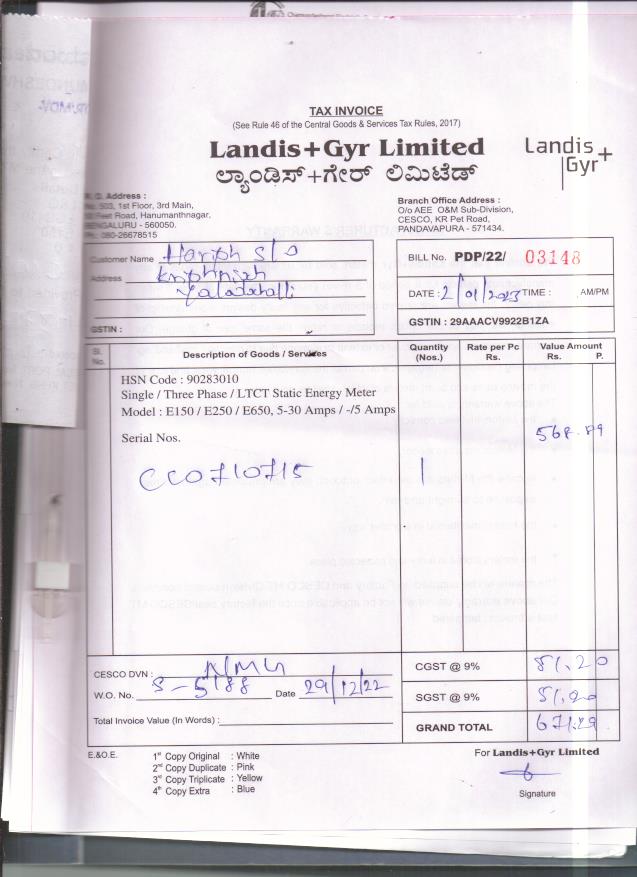 TAX INVOICE
(See Rule 46 of the Central Goods & Services Tax Rules, 2017)
Landis+Gyr Limited
ಲ್ಯಾಂಡಿಸ್+ಗೇರ್ ಲಿಮಿಟೆಡ್
Landis+
Gyr
Address :
503, 1st Floor, 3rd Main,
Road, Hanumanthnagar,
BENGALURU - 560050.
080-26678515
Branch Office Address :
O/o AEE O&M Sub-Division,
CESCO, KR Pet Road,
PANDAVAPURA - 571434.
Customer Name S/o
Address
GSTIN :
BILL No. PDP/22/ 03148
DATE : 2/01/2023 TIME : AM/PM
GSTIN : 29AAACV9922B1ZA
Sl. No. Description of Goods / Services Quantity (Nos.) Rate per Pc Rs. Value Amount Rs. P.
HSN Code : 90283010
Single / Three Phase / LTCT Static Energy Meter
Model : E150 / E250 / E650, 5-30 Amps / -/5 Amps
Serial Nos. 568.89
CC0710715 1
CESCO DVN :
W.O. No. S-5188 Date 29/12/22
Total Invoice Value (In Words) :
CGST @ 9% 51.20
SGST @ 9% 51.20
GRAND TOTAL 671.29
E.&O.E.
1st Copy Original : White
2nd Copy Duplicate : Pink
3rd Copy Triplicate : Yellow
4th Copy Extra : Blue
For Landis+Gyr Limited
Signature